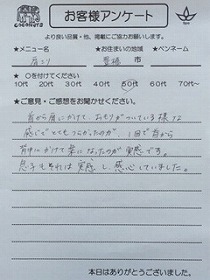 お客様アンケート
より良い品質・他、掲載にご協力お願いします。
★メニュー名 ★お住まいの地域 ★ペンネーム
肩こり 豊橋 市
★○を付けてください
10代 20代 30代 40代 50代 60代 70代~
★ご意見・ご感想をお聞かせください。
首から肩にかけて、おもりがついている様な
感じでとてもつらかったのが、1回で首から
背中にかけて楽になったのが実感です。
息子もそれは実感し、感心していました。
本日はありがとうございました。